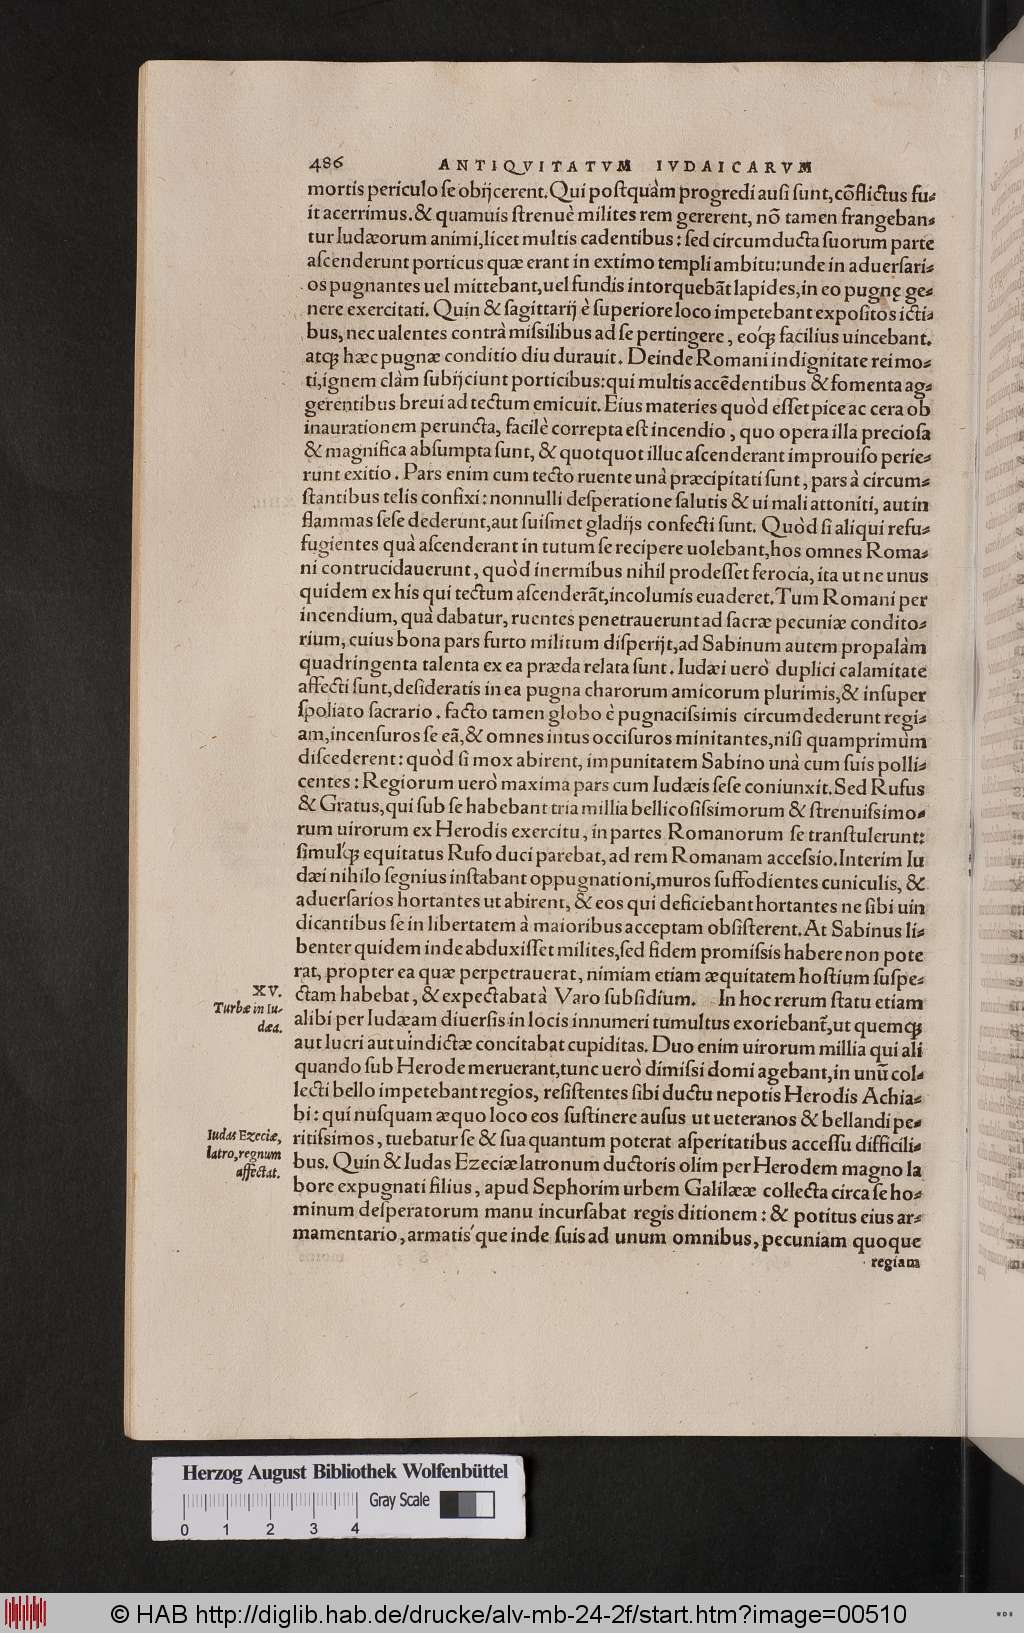 486 ANTIQVITATVM IVDAICARVM
mortis periculo ſe obijcerent. Qui poſtquàm progredi auſi ſunt, cõflictus fu⸗
it acerrimus. & quamuis ſtrenuè milites rem gererent, nõ tamen frangeban⸗
tur Iudæorum animi, licet multis cadentibus: ſed circumducta ſuorum parte
aſcenderunt porticus quæ erant in extimo templi ambitu: unde in aduerſari⸗
os pugnantes uel mittebant, uel fundis intorquebãt lapides, in eo pugnę ge⸗
nere exercitati. Quin & ſagittarij è ſuperiore loco impetebant expoſitos icti⸗
bus, nec ualentes contrà miſsilibus ad ſe pertingere, eoq́; facilius uincebant.
atq; hæc pugnæ conditio diu durauit. Deinde Romani indignitate rei mo⸗
ti, ignem clàm ſubijciunt porticibus: qui multis accẽdentibus & fomenta ag⸗
gerentibus breui ad tectum emicuit. Eius materies quòd eſſet pice ac cera ob
inaurationem peruncta, facilè correpta eſt incendio, quo opera illa precioſa
& magnifica abſumpta ſunt, & quotquot illuc aſcenderant improuiſo perie⸗
runt exitio. Pars enim cum tecto ruente unà præcipitati ſunt, pars à circum⸗
ſtantibus telis confixi: nonnulli deſperatione ſalutis & ui mali attoniti, aut in
flammas ſeſe dederunt, aut ſuiſmet gladijs confecti ſunt. Quòd ſi aliqui refu⸗
fugientes quà aſcenderant in tutum ſe recipere uolebant, hos omnes Roma⸗
ni contrucidauerunt, quòd inermibus nihil prodeſſet ferocia, ita ut ne unus
quidem ex his qui tectum aſcenderãt, incolumis euaderet. Tum Romani per
incendium, quà dabatur, ruentes penetrauerunt ad ſacræ pecuniæ condito⸗
rium, cuius bona pars furto militum diſperijt, ad Sabinum autem propalàm
quadringenta talenta ex ea præda relata ſunt. Iudæi uerò duplici calamitate
affecti ſunt, deſideratis in ea pugna charorum amicorum plurimis, & inſuper
ſpoliato ſacrario. facto tamen globo è pugnaciſsimis circumdederunt regi⸗
am, incenſuros ſe eã, & omnes intus occiſuros minitantes, niſi quamprimùm
diſcederent: quòd ſi mox abirent, impunitatem Sabino unà cum ſuis polli⸗
centes: Regiorum uerò maxima pars cum Iudæis ſeſe coniunxit. Sed Rufus
& Gratus, qui ſub ſe habebant tria millia bellicoſiſsimorum & ſtrenuiſsimo⸗
rum uirorum ex Herodis exercitu, in partes Romanorum ſe tranſtulerunt:
ſimulq́; equitatus Rufo duci parebat, ad rem Romanam acceſsio. Interim Iu
dæi nihilo ſegnius inſtabant oppugnationi, muros ſuffodientes cuniculis, &
aduerſarios hortantes ut abirent, & eos qui deficiebant hortantes ne ſibi uin
dicantibus ſe in libertatem à maioribus acceptam obſiſterent. At Sabinus li⸗
benter quidem inde abduxiſſet milites, ſed fidem promiſsis habere non pote
rat, propter ea quæ perpetrauerat, nimiam etiam æquitatem hoſtium ſuſpe⸗
XV. ctam habebat, & expectabat à Varo ſubſidium. In hoc rerum ſtatu etiam
Turbæ in Iu- alibi per Iudæam diuerſis in locis innumeri tumultus exoriebant̃, ut quemq;
dæa. aut lucri aut uindictæ concitabat cupiditas. Duo enim uirorum millia qui ali
quando ſub Herode meruerant, tunc uerò dimiſsi domi agebant, in unũ col⸗
lecti bello impetebant regios, reſiſtentes ſibi ductu nepotis Herodis Achia⸗
bi: qui nuſquam æquo loco eos ſuſtinere auſus ut ueteranos & bellandi pe⸗
Iudas Ezeciæ, ritiſsimos, tuebatur ſe & ſua quantum poterat aſperitatibus acceſſu difficili⸗
latro, regnum bus. Quin & Iudas Ezeciæ latronum ductoris olim per Herodem magno la
affectat. bore expugnati filius, apud Sephorim urbem Galilææ collecta circa ſe ho⸗
minum deſperatorum manu incurſabat regis ditionem: & potitus eius ar⸗
mamentario, armatiś que inde ſuis ad unum omnibus, pecuniam quoque
regiam
Herzog August Bibliothek Wolfenbüttel
Gray Scale
0 1 2 3 4
© HAB http://diglib.hab.de/drucke/alv-mb-24-2f/start.htm?image=00510